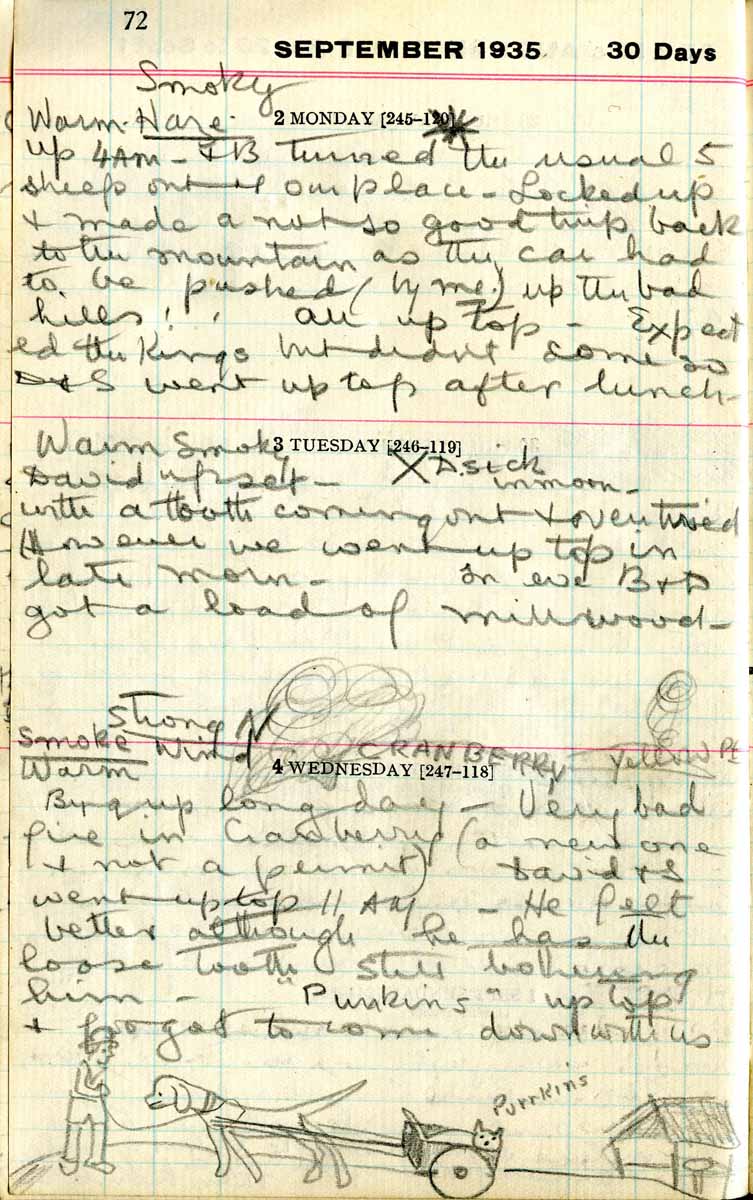 72
SEPTEMBER 1935 30 Days
Smoky
Warm. Haze. 2 MONDAY [245–120]
up 4 AM – & B turned the usual 5
sheep out + our place – Locked up
+ made a not so good trip back
to the mountain as the car had
to be pushed (by me.) up the bad
hills ! ! all up top – Expect
ed the Kings but didnt come so
D+S went up top after lunch –
Warm Smoky 3 TUESDAY [246–119]
David upset – X D. sick
in morn –
with a tooth coming out + over tired
However we went up top in
late morn – In eve B+D
got a load of mill wood –
Strong N
Smoke Wind CRANBERRY Yellow Pt
Warm 4 WEDNESDAY [247–118]
B+g up long day – Very bad
fire in Cranberry (a new one
+ not a permit) David + S
went up top 11 AM – He felt
better although he has the
loose tooth still bothering
him – "Purrkins" up top
+ forgot to come down with us
Purrkins